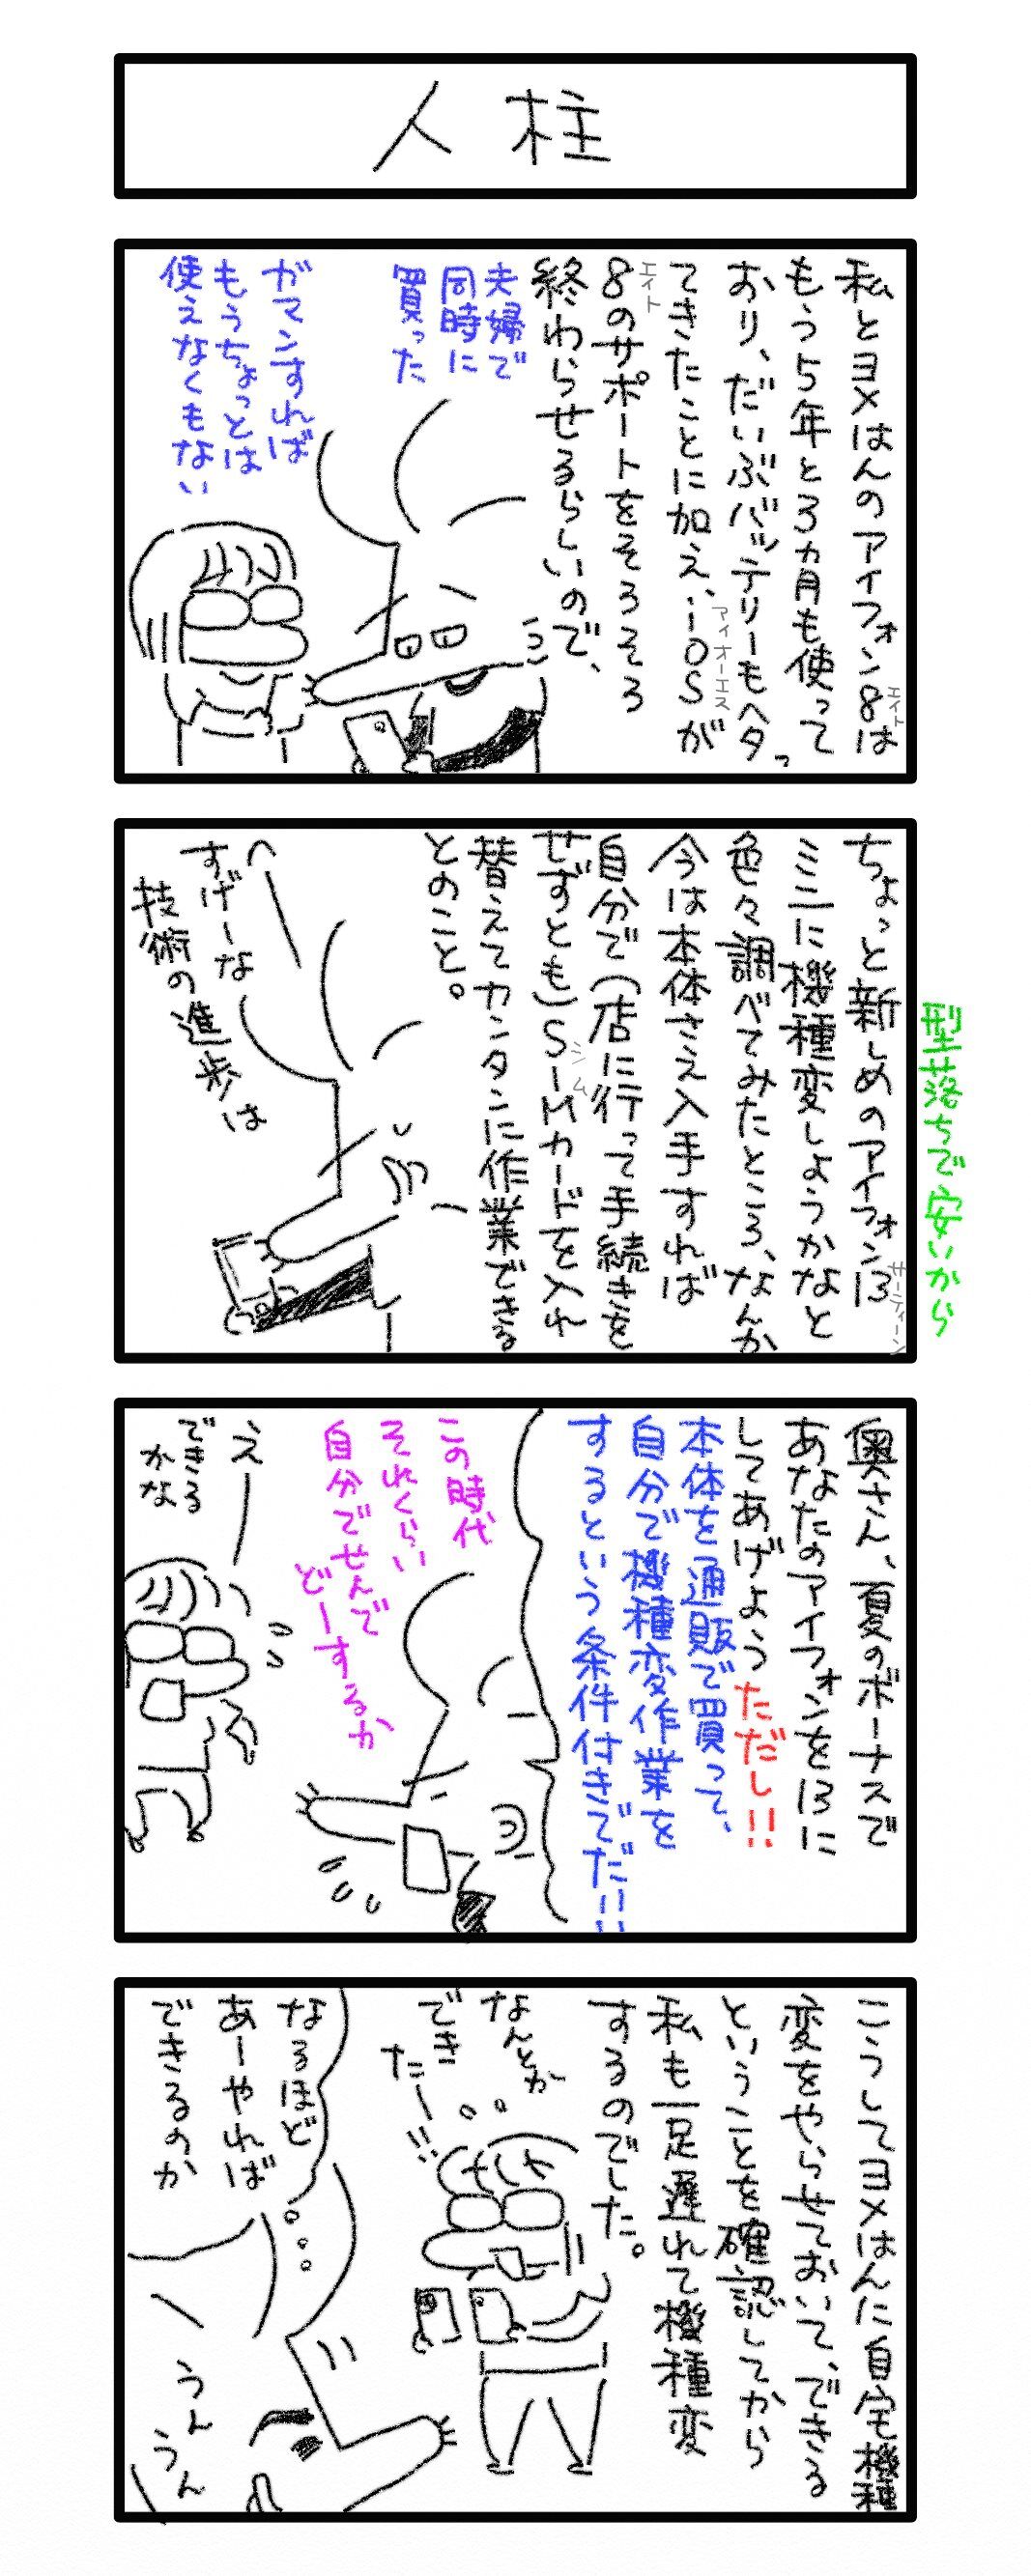 人柱
私とヨメはんのアイフォン8は
エイト
もう5年と3ヵ月も使って
おり、だいぶバッテリーもヘタっ
てきたことに加え、iOSが
アイオーエス
8のサポートをそろそろ
エイト
終わらせるらしいので、
夫婦で
同時に
買った
ガマンすれば
もうちょっとは
使えなくもない
型落ちで安いから
ちょっと新しめのアイフォン13
サーティーン
ミニに機種変しようかなと
色々調べてみたところ、なんか
今は本体さえ入手すれば
自分で(店に行って手続きを
せずとも)SIMカードを入れ
シム
替えてカンタンに作業できる
とのこと。
へー
すげーな
技術の進歩は
奥さん、夏のボーナスで
あなたのアイフォンを13に
してあげようただし!!
本体を通販で買って、
自分で機種変作業を
するという条件付きでだ!!!
この時代
それくらい
自分でせんで
どーするか
え―
できる
かな
こうしてヨメはんに自宅機種
変をやらせておいて、できる
ということを確認してから
私も一足遅れて機種変
するのでした。
なんとか
でき
たー!!
なるほど
あーやれば
できるのか
うん
うん